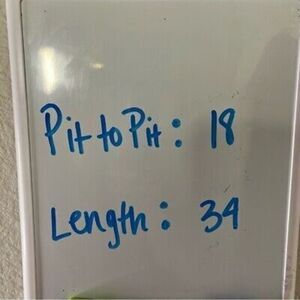 Pit to Pit: 18
Length: 34